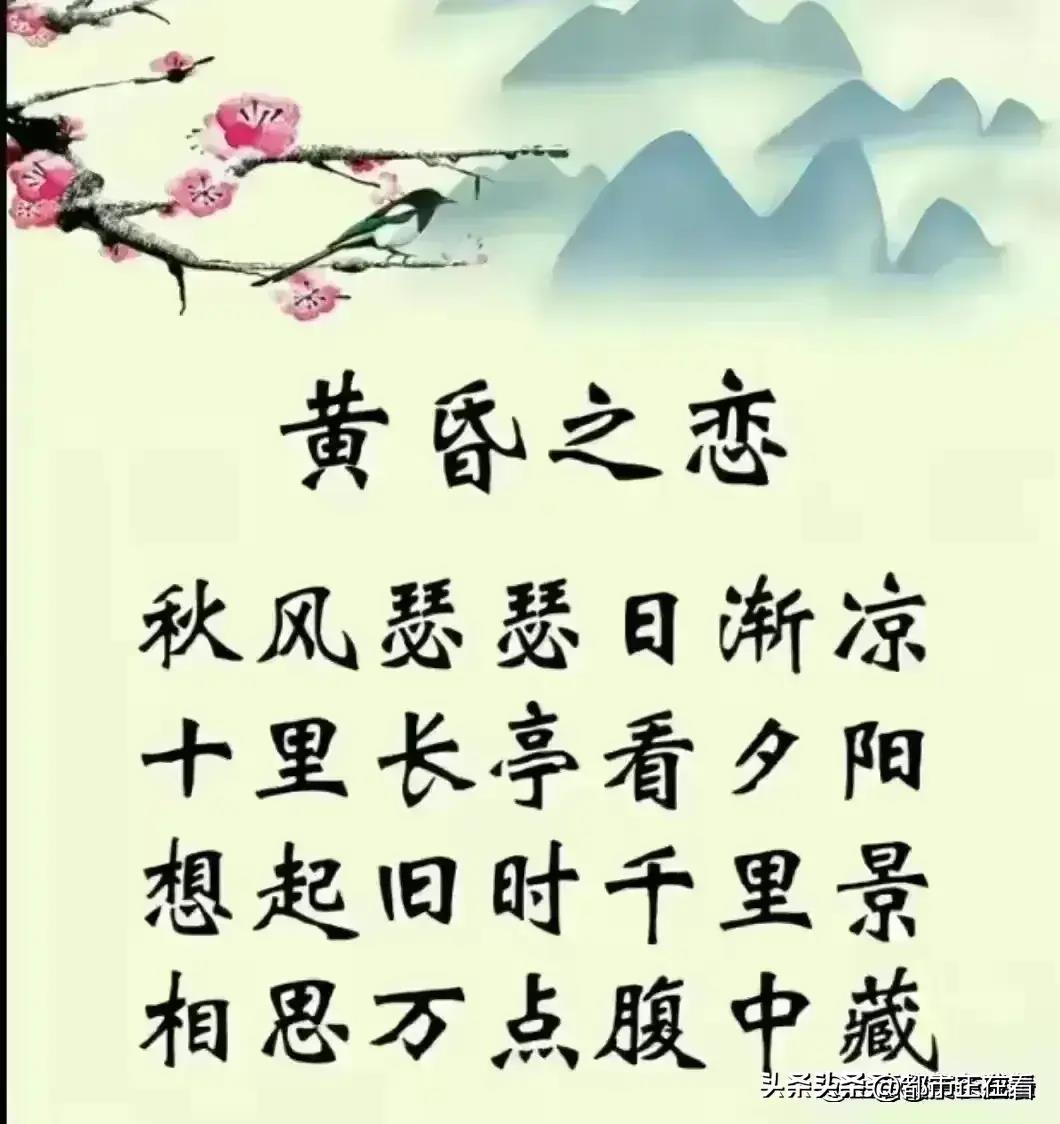 黄昏之恋
秋风瑟瑟日渐凉
十里长亭看夕阳
想起旧时千里景
相思万点腹中藏
头条 @都市正在看